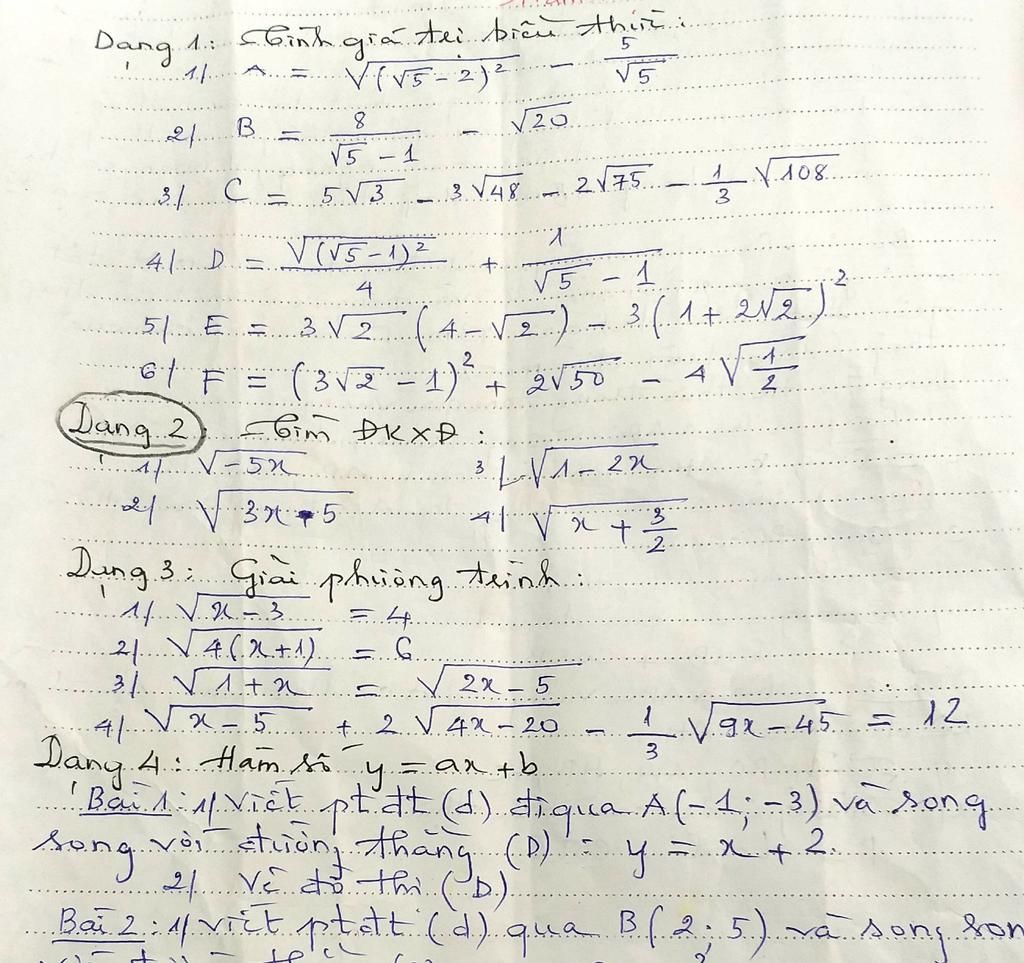 Dạng 1: Tính giá trị biểu thức:
1/ A = √(√5 - 2)² - 5/√5
2/ B = 8/(√5 - 1) - √20
3/ C = 5√3 - 3√48 - 2√75 - 1/3 √108
4/ D = √(√5 - 1)²/4 + 1/(√5 - 1)
5/ E = 3√2 (4 - √2) - 3(1 + 2√2)²
6/ F = (3√2 - 1)² + 2√50 - 4√(1/2)
Dạng 2 Tìm ĐKXĐ:
1/ √(-5x) 3/ √(1 - 2x)
2/ √(3x - 5) 4/ √(x + 3/2)
Dạng 3: Giải phương trình:
1/ √(x - 3) = 4
2/ √(4(x+1)) = 6
3/ √(1 + x) = √(2x - 5)
4/ √(x - 5) + 2√(4x - 20) - 1/3 √(9x - 45) = 12
Dạng 4: Hàm số y = ax + b
Bài 1: 1/ Viết ptđt (d) đi qua A(-1; -3) và song
song với đường thẳng (D) : y = x + 2.
2/ Vẽ đồ thị (D)
Bài 2: 1/ Viết ptđt (d) qua B(2; 5) và song son